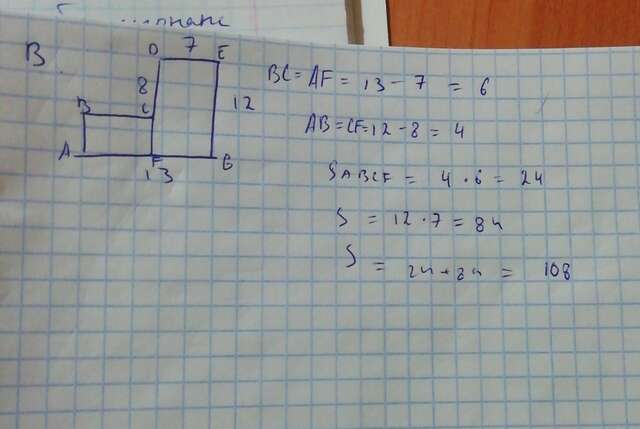 В
D 7 E
8
12
B C
A F G
13
BC = AF = 13 - 7 = 6
AB = CF = 12 - 8 = 4
SABCF = 4 · 6 = 24
S = 12 · 7 = 84
S = 24 + 84 = 108